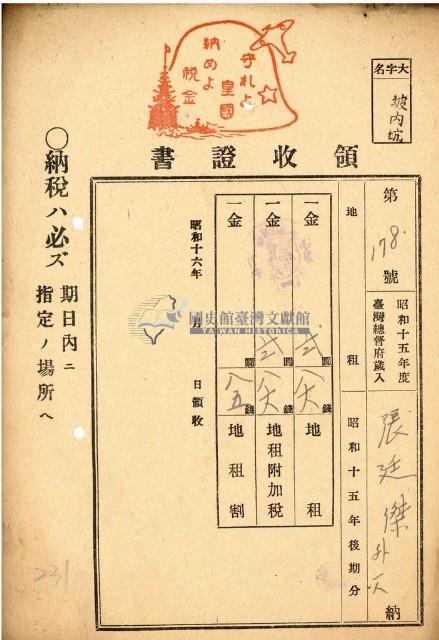 守れよ
皇國
納めよ
税金
大字名
坡内坑
領收證書
第178號
昭和十五年度
臺灣總督府歲入
張廷傑外一人
納
地租
昭和十五年後期分
一金 圓 錢 地租
一金 圓 錢 地租附加税
一金 圓八五錢 地租割
昭和十六年 月 日領收
國史館臺灣文獻館
TAIWAN HISTORICA
○納税ハ必ズ
期日内ニ
指定ノ場所へ
231